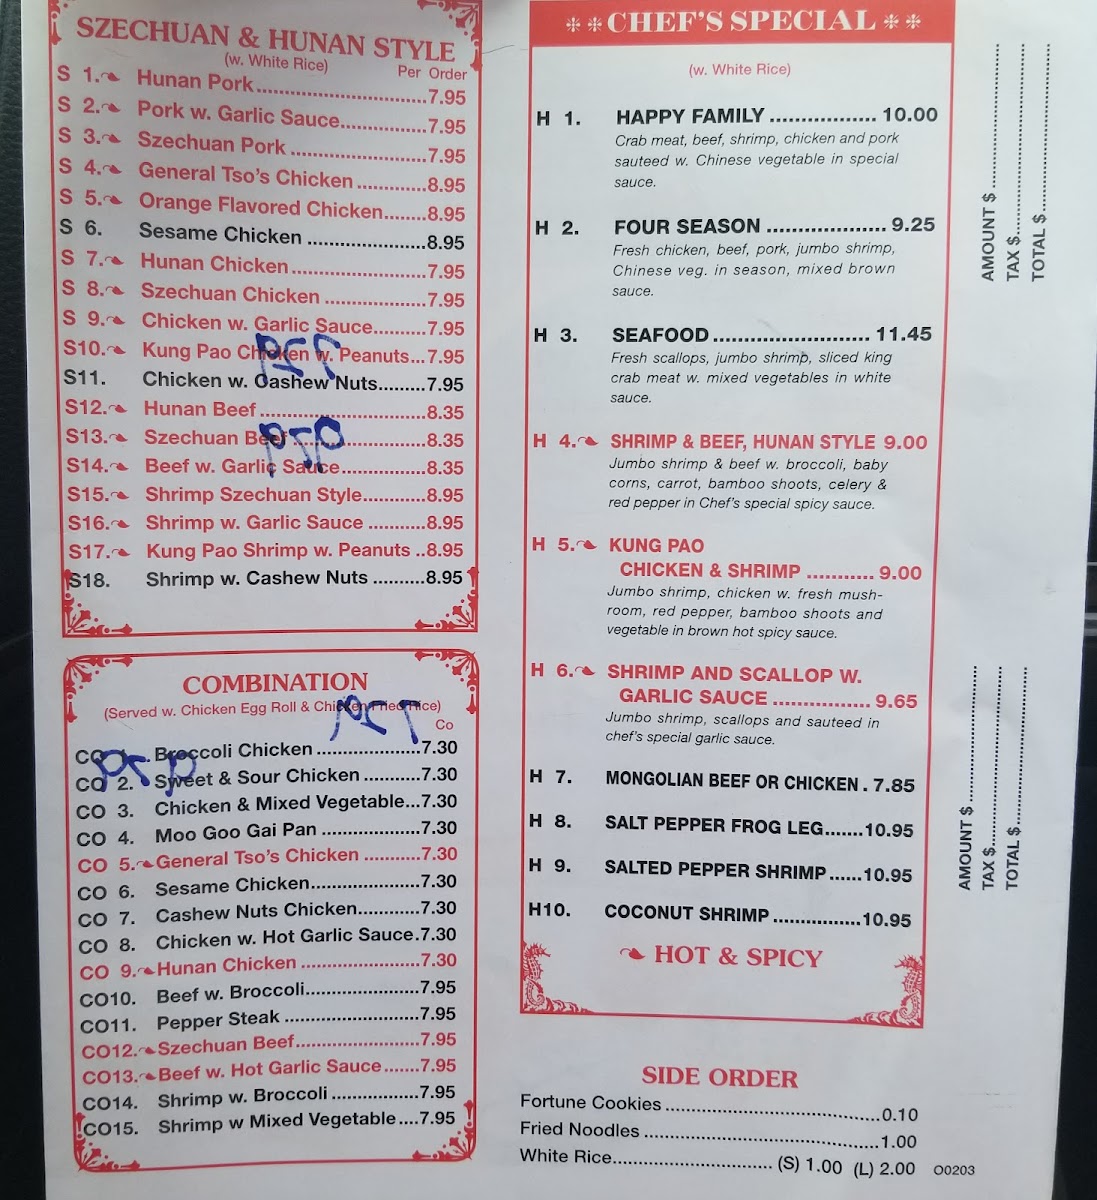 SZECHUAN & HUNAN STYLE
(w. White Rice)
Per Order
S 1. Hunan Pork 7.95
S 2. Pork w. Garlic Sauce 7.95
S 3. Szechuan Pork 7.95
S 4. General Tso's Chicken 8.95
S 5. Orange Flavored Chicken 8.95
S 6. Sesame Chicken 8.95
S 7. Hunan Chicken 7.95
S 8. Szechuan Chicken 7.95
S 9. Chicken w. Garlic Sauce 7.95
S10. Kung Pao Chicken w. Peanuts 7.95
S11. Chicken w. Cashew Nuts 7.95
S12. Hunan Beef 8.35
S13. Szechuan Beef 8.35
S14. Beef w. Garlic Sauce 8.35
S15. Shrimp Szechuan Style 8.95
S16. Shrimp w. Garlic Sauce 8.95
S17. Kung Pao Shrimp w. Peanuts 8.95
S18. Shrimp w. Cashew Nuts 8.95
COMBINATION
(Served w. Chicken Egg Roll & Chicken Fried Rice)
Co
CO 1. Broccoli Chicken 7.30
CO 2. Sweet & Sour Chicken 7.30
CO 3. Chicken & Mixed Vegetable 7.30
CO 4. Moo Goo Gai Pan 7.30
CO 5. General Tso's Chicken 7.30
CO 6. Sesame Chicken 7.30
CO 7. Cashew Nuts Chicken 7.30
CO 8. Chicken w. Hot Garlic Sauce 7.30
CO 9. Hunan Chicken 7.30
CO10. Beef w. Broccoli 7.95
CO11. Pepper Steak 7.95
CO12. Szechuan Beef 7.95
CO13. Beef w. Hot Garlic Sauce 7.95
CO14. Shrimp w. Broccoli 7.95
CO15. Shrimp w Mixed Vegetable 7.95
CHEF'S SPECIAL
(w. White Rice)
H 1. HAPPY FAMILY 10.00
Crab meat, beef, shrimp, chicken and pork
sauteed w. Chinese vegetable in special
sauce.
H 2. FOUR SEASON 9.25
Fresh chicken, beef, pork, jumbo shrimp,
Chinese veg. in season, mixed brown
sauce.
H 3. SEAFOOD 11.45
Fresh scallops, jumbo shrimp, sliced king
crab meat w. mixed vegetables in white
sauce.
H 4. SHRIMP & BEEF, HUNAN STYLE 9.00
Jumbo shrimp & beef w. broccoli, baby
corns, carrot, bamboo shoots, celery &
red pepper in Chef's special spicy sauce.
H 5. KUNG PAO
CHICKEN & SHRIMP 9.00
Jumbo shrimp, chicken w. fresh mush-
room, red pepper, bamboo shoots and
vegetable in brown hot spicy sauce.
H 6. SHRIMP AND SCALLOP W.
GARLIC SAUCE 9.65
Jumbo shrimp, scallops and sauteed in
chef's special garlic sauce.
H 7. MONGOLIAN BEEF OR CHICKEN . 7.85
H 8. SALT PEPPER FROG LEG 10.95
H 9. SALTED PEPPER SHRIMP 10.95
H10. COCONUT SHRIMP 10.95
HOT & SPICY
SIDE ORDER
Fortune Cookies 0.10
Fried Noodles 1.00
White Rice (S) 1.00 (L) 2.00
O0203
AMOUNT $
TAX $
TOTAL $
AMOUNT $
TAX $
TOTAL $